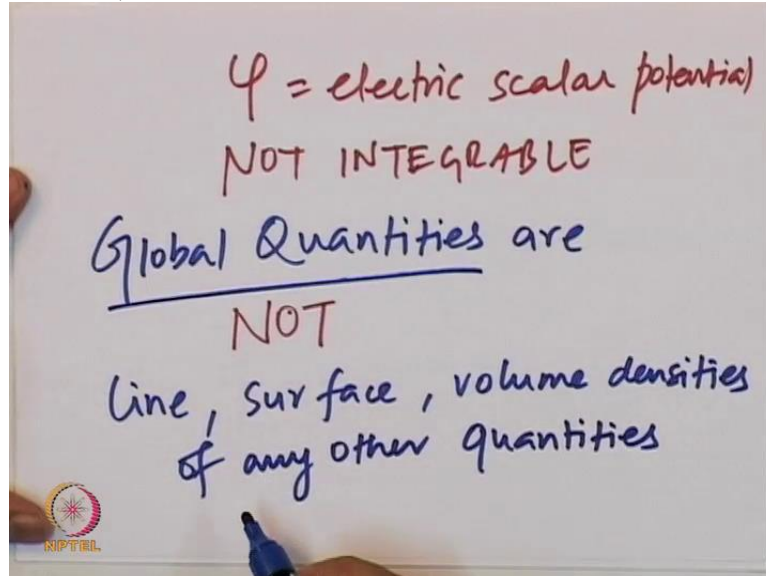 φ = electric scalar potential
NOT INTEGRABLE
Global Quantities are
NOT
line, surface, volume densities
of any other quantities
NPTEL